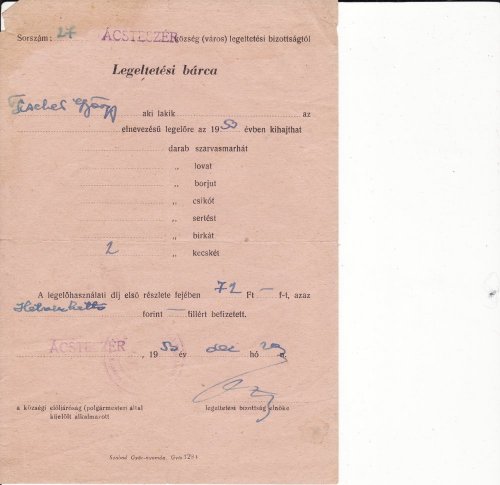 Sorszám: 27 ÁCSTESZÉR község (város) legeltetési bizottságtól
Legeltetési bárca
aki lakik az
elnevezésű legelőre az 1950 évben kihajthat
darab szarvasmarhát
„ lovat
„ borjut
„ csikót
„ sertést
„ birkát
2 „ kecskét
A legelőhasználati díj első részlete fejében 72 Ft — f-t, azaz
Hetvenkettő forint — fillért befizetett.
ÁCSTESZÉR, 1950 év dec hó 29 n.
a községi elöljáróság (polgármester) által
kijelölt alkalmazott
legeltetési bizottság elnöke
Szabad Győr-nyomda, Győr